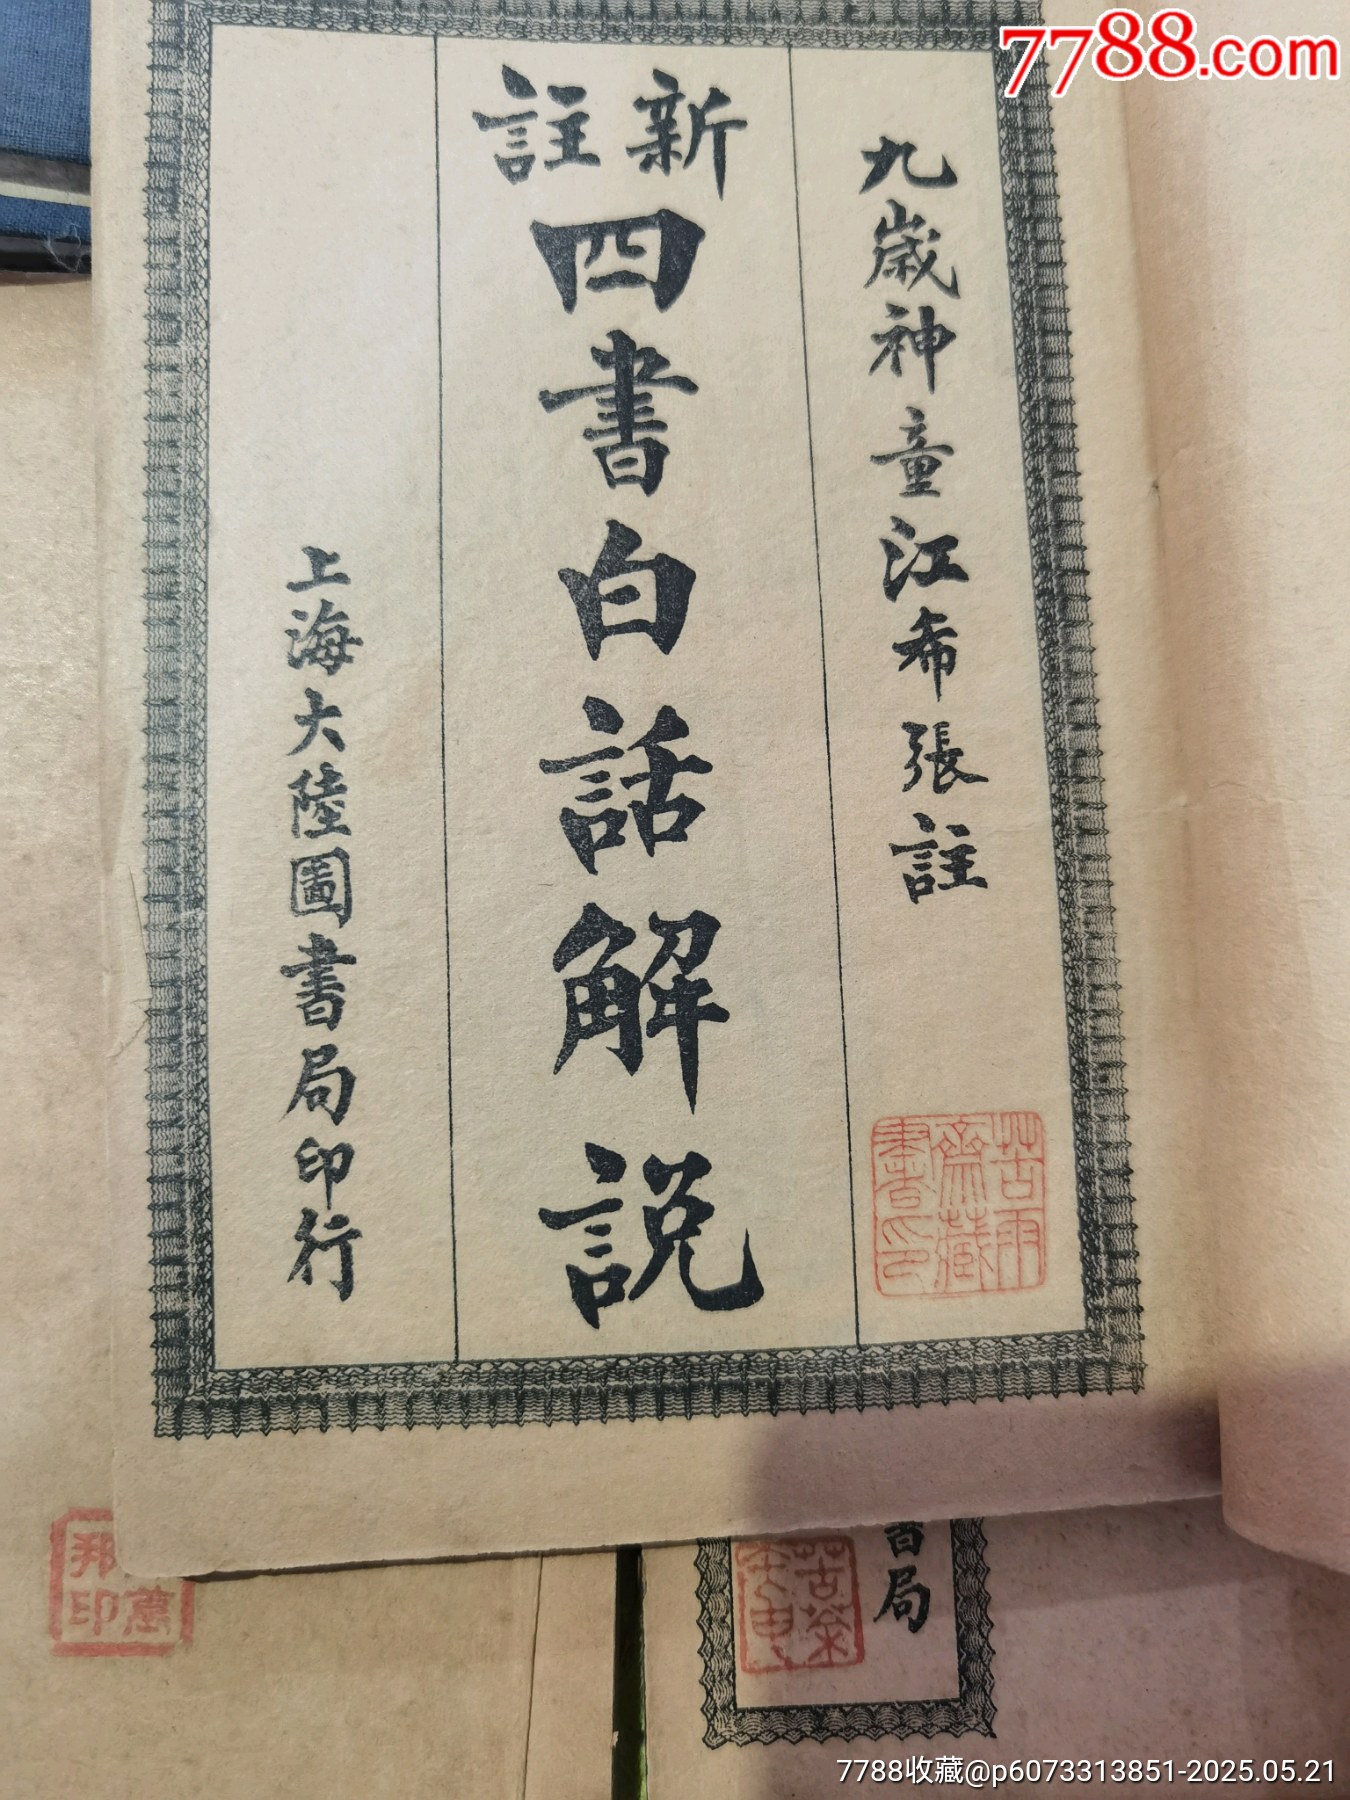 7788.com
九歲神童江希張註
新註
四書白話解說
上海大陸圖書局印行
苦雨
齋藏
書印
書局
邦
印
萬
苦茶
7788收藏@p6073313851-2025.05.21